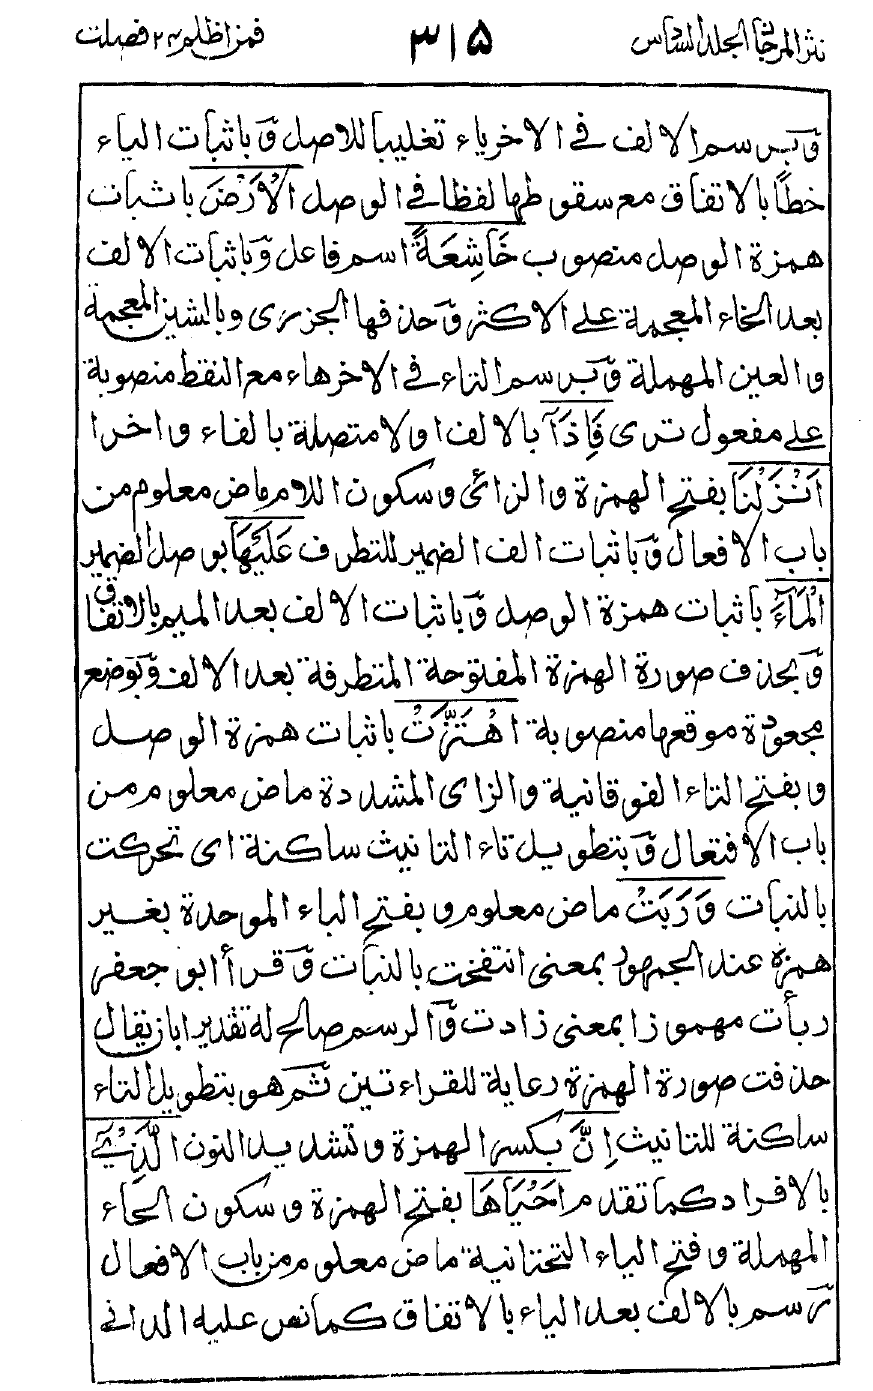 نثر المرجان الجلد السادس ٣١٥ فمن اظلم ٢٤ فصلت
وَبرسم الالف فى الاخر ياء تغليبا للاصل وَباثبات الياء
خطاً بالاتفاق مع سقوطها لفظا فى الوصل الْاَرْضَ باثبات
همزة الوصل منصوب خَاشِعَةً اسم فاعل وَباثبات الالف
بعد الخاء المعجمة على الاكثر وَحذفها الجزرى وبالشين المعجمة
والعين المهملة وَبرسم التاء فى الاخر هاء مع النقط منصوبة
على مفعول ترى فَاِذَآ بالالف اولا متصلة بالفاء واخرا
اَنْزَلْنَا بفتح الهمزة والزائى وسكون اللام ماض معلوم من
باب الافعال وَباثبات الف الضمير للتطرف عَلَيْهَا بوصل الضمير
الْمَآءَ باثبات همزة الوصل وَباثبات الالف بعد الميم بالاتفاق
وَبحذف صورة الهمزة المفتوحة المتطرفة بعد الالف وَبوضع
مجعودة موقعها منصوبة اهْتَزَّتْ باثبات همزة الوصل
وبفتح التاء الفوقانية والزاى المشددة ماض معلوم من
باب الافتعال وَبتطويل تاء التانيث ساكنة اى تحركت
بالنبات وَرَبَتْ ماض معلوم وبفتح الباء الموحدة بغير
همزة عند الجمهور بمعنى انتفخت بالنبات وَقرأ ابو جعفر
ربأت مهموزا بمعنى زادت وَالرسم صالح له تقديرا بان يقال
حذفت صورة الهمزة رعاية للقراءتين ثم هو بتطويل التاء
ساكنة للتانيث اِنَّ بكسر الهمزة وتشديد النون الَّذِىْٓ
بالافراد كما تقدم اَحْيَاهَا بفتح الهمزة وسكون الحاء
المهملة وفتح الياء التحتانية ماض معلوم من باب الافعال
رسم بالالف بعد الياء بالاتفاق كما نص عليه الدانى